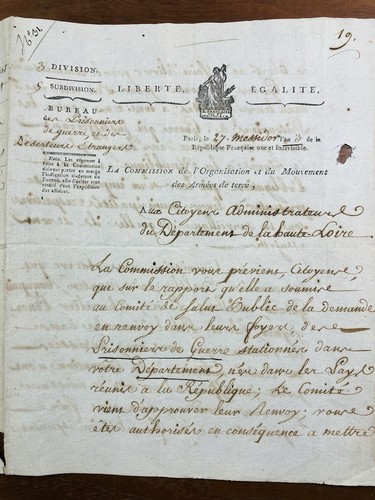 19.
3 DIVISION.
5 SUBDIVISION.
LIBERTÉ, ÉGALITÉ,
BUREAU
des Prisonniers
de guerre et des
Déserteurs Etrangers
Nota. Les réponses à
faire à la Commission
doivent porter en marge
l'indication ci-dessus du
Bureau, afin d'éviter tout
retard dans l'expédition
des affaires.
Paris, le 27 Messidor l'an 3 de la
République Française une et indivisible.
LA COMMISSION de l'Organisation et du Mouvement
des Armées de terre,
Aux Citoyens Administrateurs
du Département de la haute-Loire
La Commission vous prévient, Citoyens,
que sur le rapport qu'elle a soumis
au Comité de Salut Public de la demande
en renvoy dans leurs foyers, des
Prisonniers de Guerre stationnés dans
votre Département, nés dans les Pays
réunis à la République; Le Comité
vient d'approuver leur Renvoy; vous
etes authorisés en conséquence a mettre